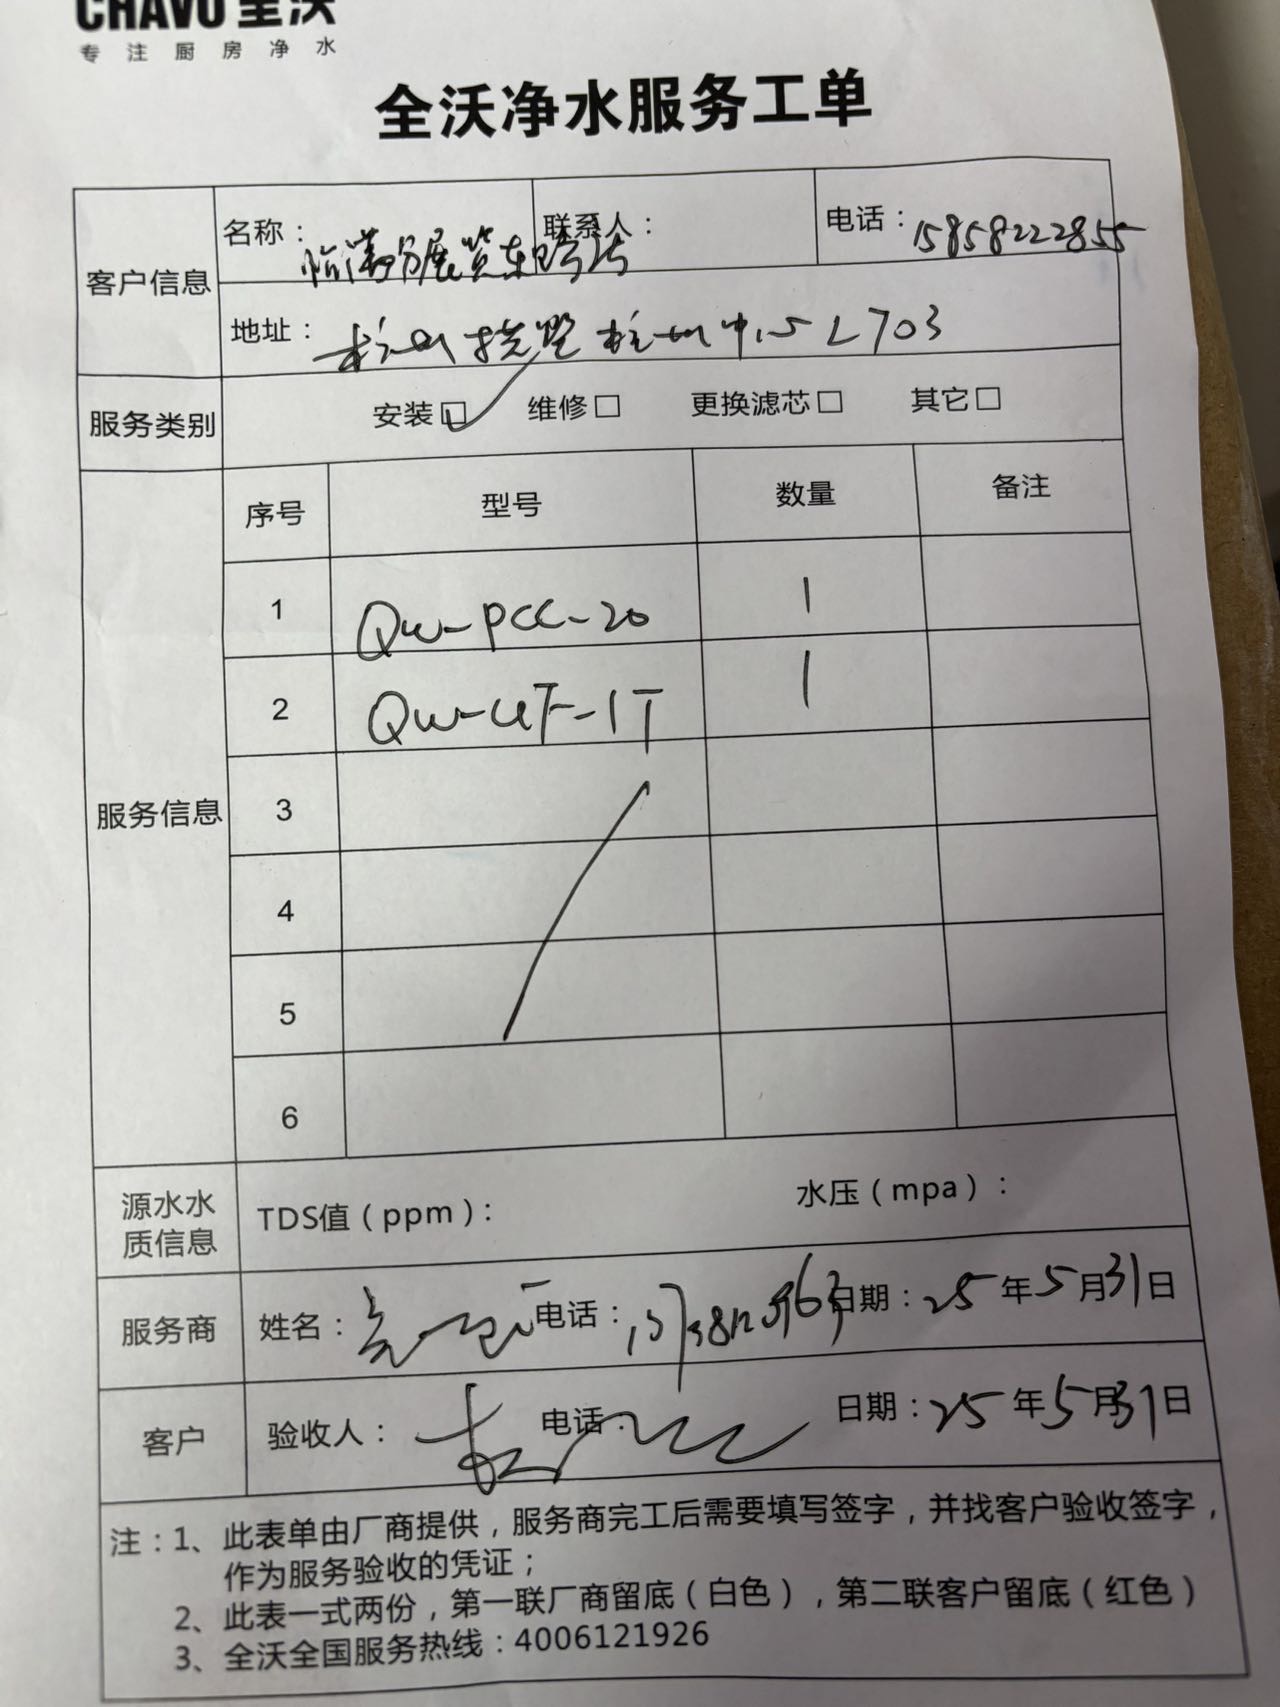 CHAVO 全沃
专注厨房净水
全沃净水服务工单
客户信息
名称：
联系人：
电话：15858222855
地址：杭州 中心 L703
服务类别
安装☑ 维修□ 更换滤芯□ 其它□
服务信息
序号 型号 数量 备注
1 Qw-PCC-20 1
2 Qw-UF-1T 1
3
4
5
6
源水水质信息
TDS值（ppm）： 水压（mpa）：
服务商 姓名： 电话： 日期：25年5月31日
客户 验收人： 电话： 日期：25年5月31日
注：1、此表单由厂商提供，服务商完工后需要填写签字，并找客户验收签字，
作为服务验收的凭证；
2、此表一式两份，第一联厂商留底（白色），第二联客户留底（红色）
3、全沃全国服务热线：4006121926